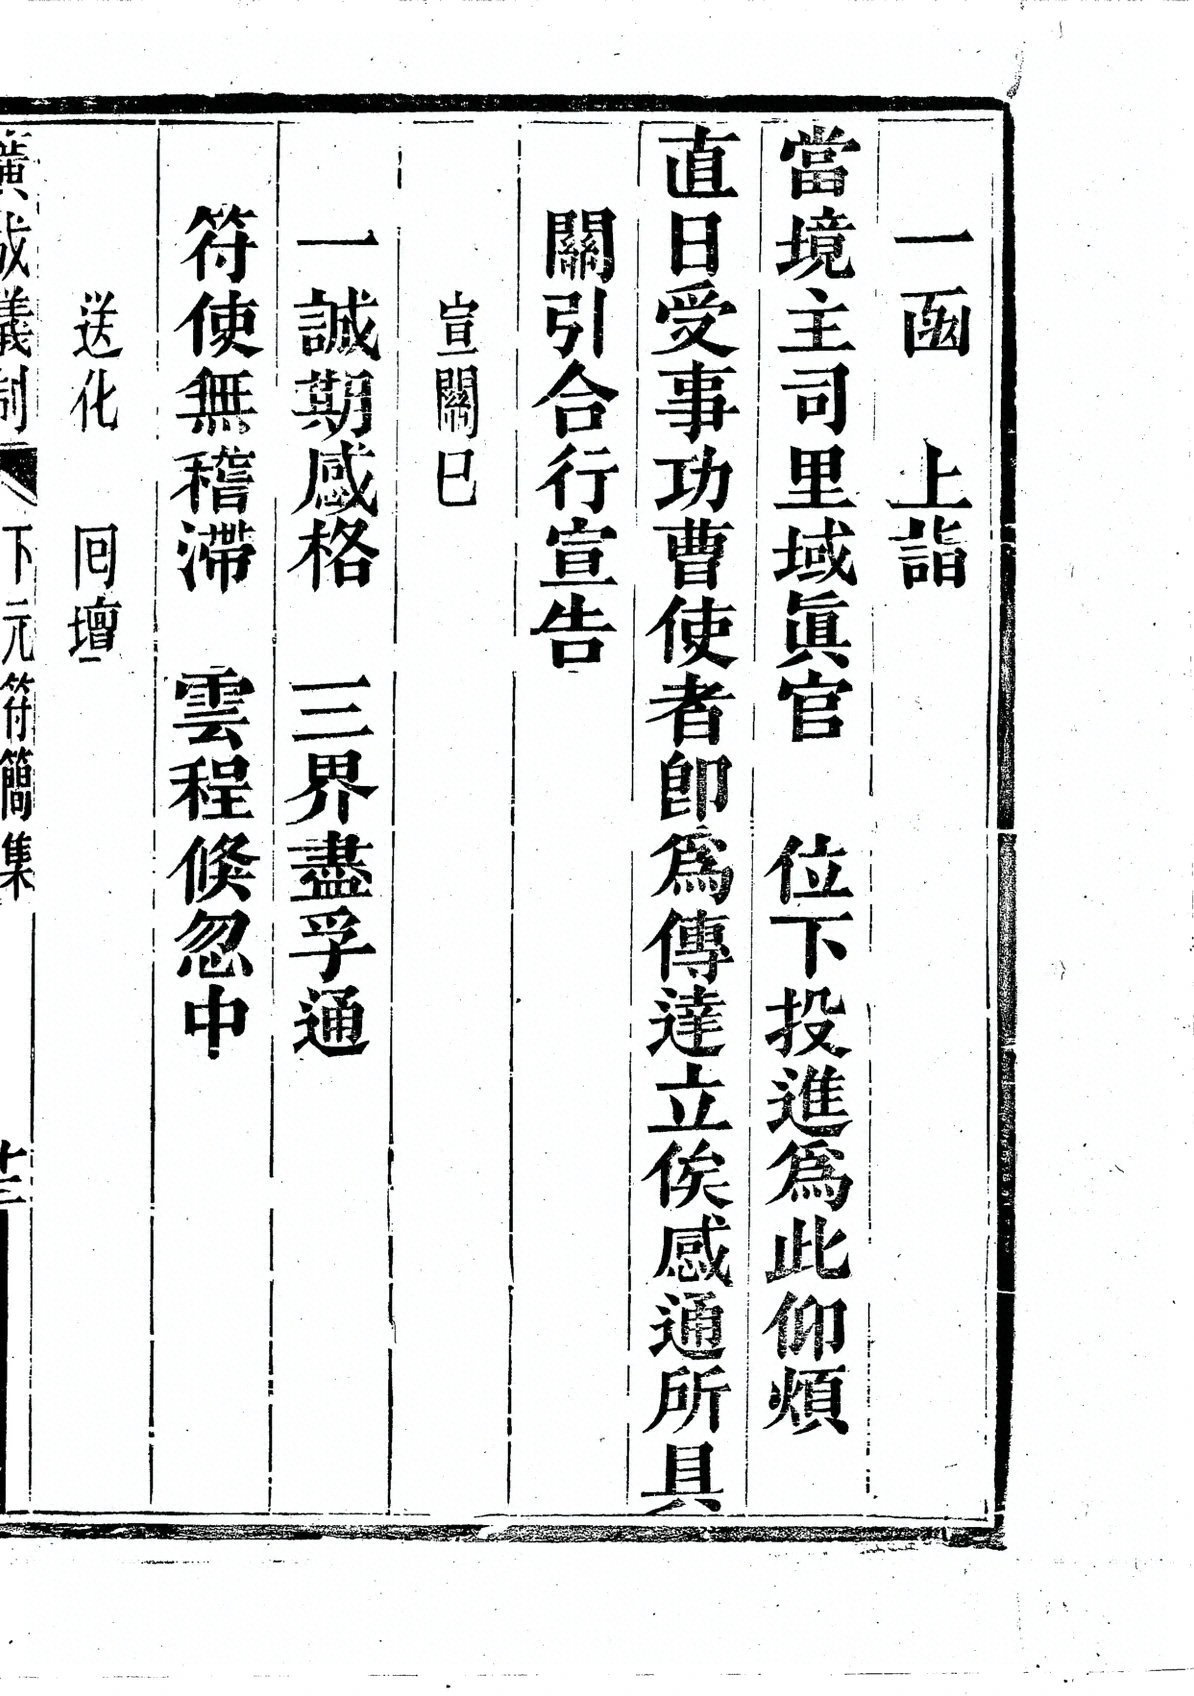 一函　上詣
當境主司里域眞官　位下投進爲此仰煩
直日受事功曹使者卽爲傳達立俟感通所具
關引合行宣告
宣關已
一誠期感格　三界盡孚通
符使無稽滯　雲程倐忽中
送化　囘壇
廣成儀制　下元符簡集　十三